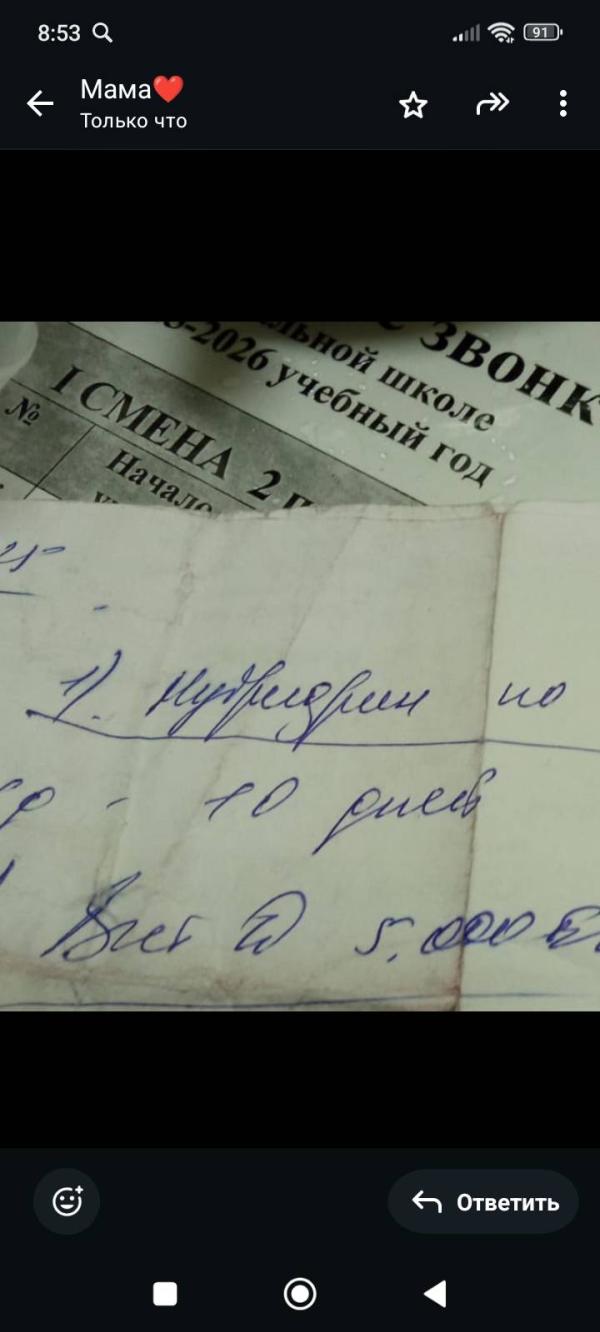 8:53
91
Мама❤️
Только что
ЗВОНК
льной школе
-2026 учебный год
I СМЕНА 2
№
Начало
25
1). по
- 10 дней
Вит D 5.000
Ответить